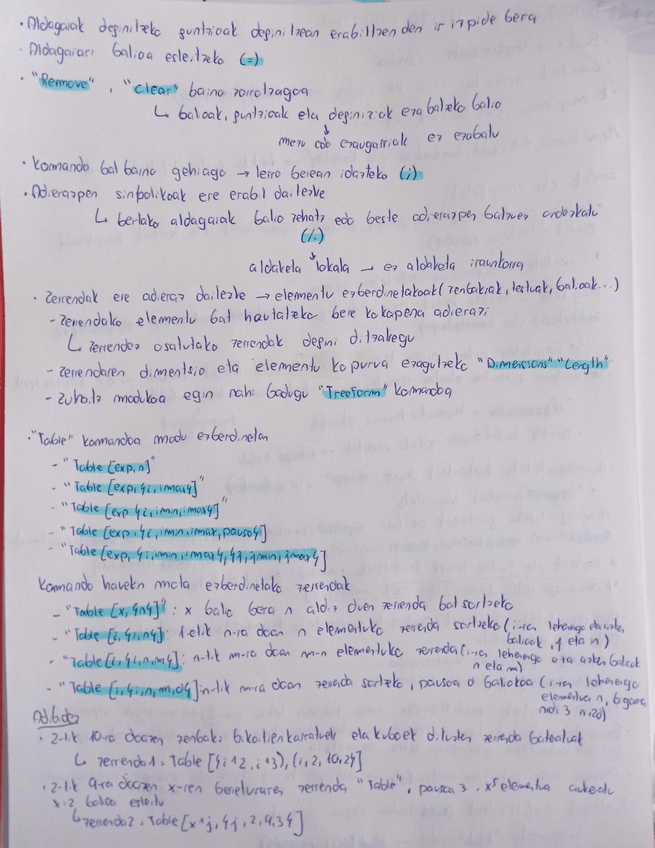 · Aldagaiak definitzeko funtzioak definitzean erabiltzen den irizpide bera
· Aldagaiari balioa esleitzeko (=)
· "Remove", "Clear" baino zorrotzagoa
↳ balioak, funtzioak eta definizioak ezabatzeko balio
↓
mezu edo ezaugarriak ez ezabatu
· Komando bat baino gehiago → lerro berean idazteko (;)
· Adierazpen sinbolikoak ere erabil daitezke
↳ bertako aldagaiak balio zehatz edo beste adierazpen batzuez ordezkatu
(/.)
aldaketa lokala → ez aldaketa iraunkorra
· Zerrendak ere adieraz daitezke → elementu ezberdinetakoak (zenbakiak, testuak, balioak...)
- Zerrendako elementu bat hautatzeko bere kokapena adierazi
↳ zerrendez osatutako zerrendak defini ditzakegu
- Zerrendaren dimentsio eta elementu kopurua ezagutzeko "Dimensions" "Length"
- Zuhaitz modukoa egin nahi badugu "TreeForm" komandoa
· "Table" komandoa modu ezberdinetan
- "Table [exp, n]"
- "Table [exp, {i, imax}]"
- "Table [exp {i, imin, imax}]"
- "Table [exp, {i, imin, imax, pauso}]
- "Table [exp, {i, imin, imax}, {j, jmin, jmax}]
Komando hauekin mota ezberdinetako zerrendak
- "Table [x, {n}]" : x balio bera n aldiz duen zerrenda bat sortzeko
- "Table [i, {i, n}] : 1-etik n-ra doan n elementuko zerrenda sortzeko (i-ra lehenengo eta azken balioak, 1 eta n)
- "Table [i, {i, n, m}] : n-tik m-ra doan m-n elementuko zerrenda (i-ra lehenengo eta azken balioak n eta m)
- "Table [i, {i, n, m, d}] : n-tik m-ra doan zerrenda sortzeko, pausoa d baliokoa (i-ra lehenengo elementua n, bigarra n+d, 3 n+2d)
Adibidez
· 2-tik 10-ra doazen zenbaki bikoitien karratuek eta kuboek dituzten zerrenda batzuk
↳ zerrenda1 = Table [{i^2, i^3}, {i, 2, 10, 2}]
· 2-tik 9-ra doazen x-ren berreturaren zerrenda "Table", pausoa 3. x^5 elementua aukeratu
x=2 balioa esleitu
↳ zerrenda2 = Table [x^j, {j, 2, 9, 3}]